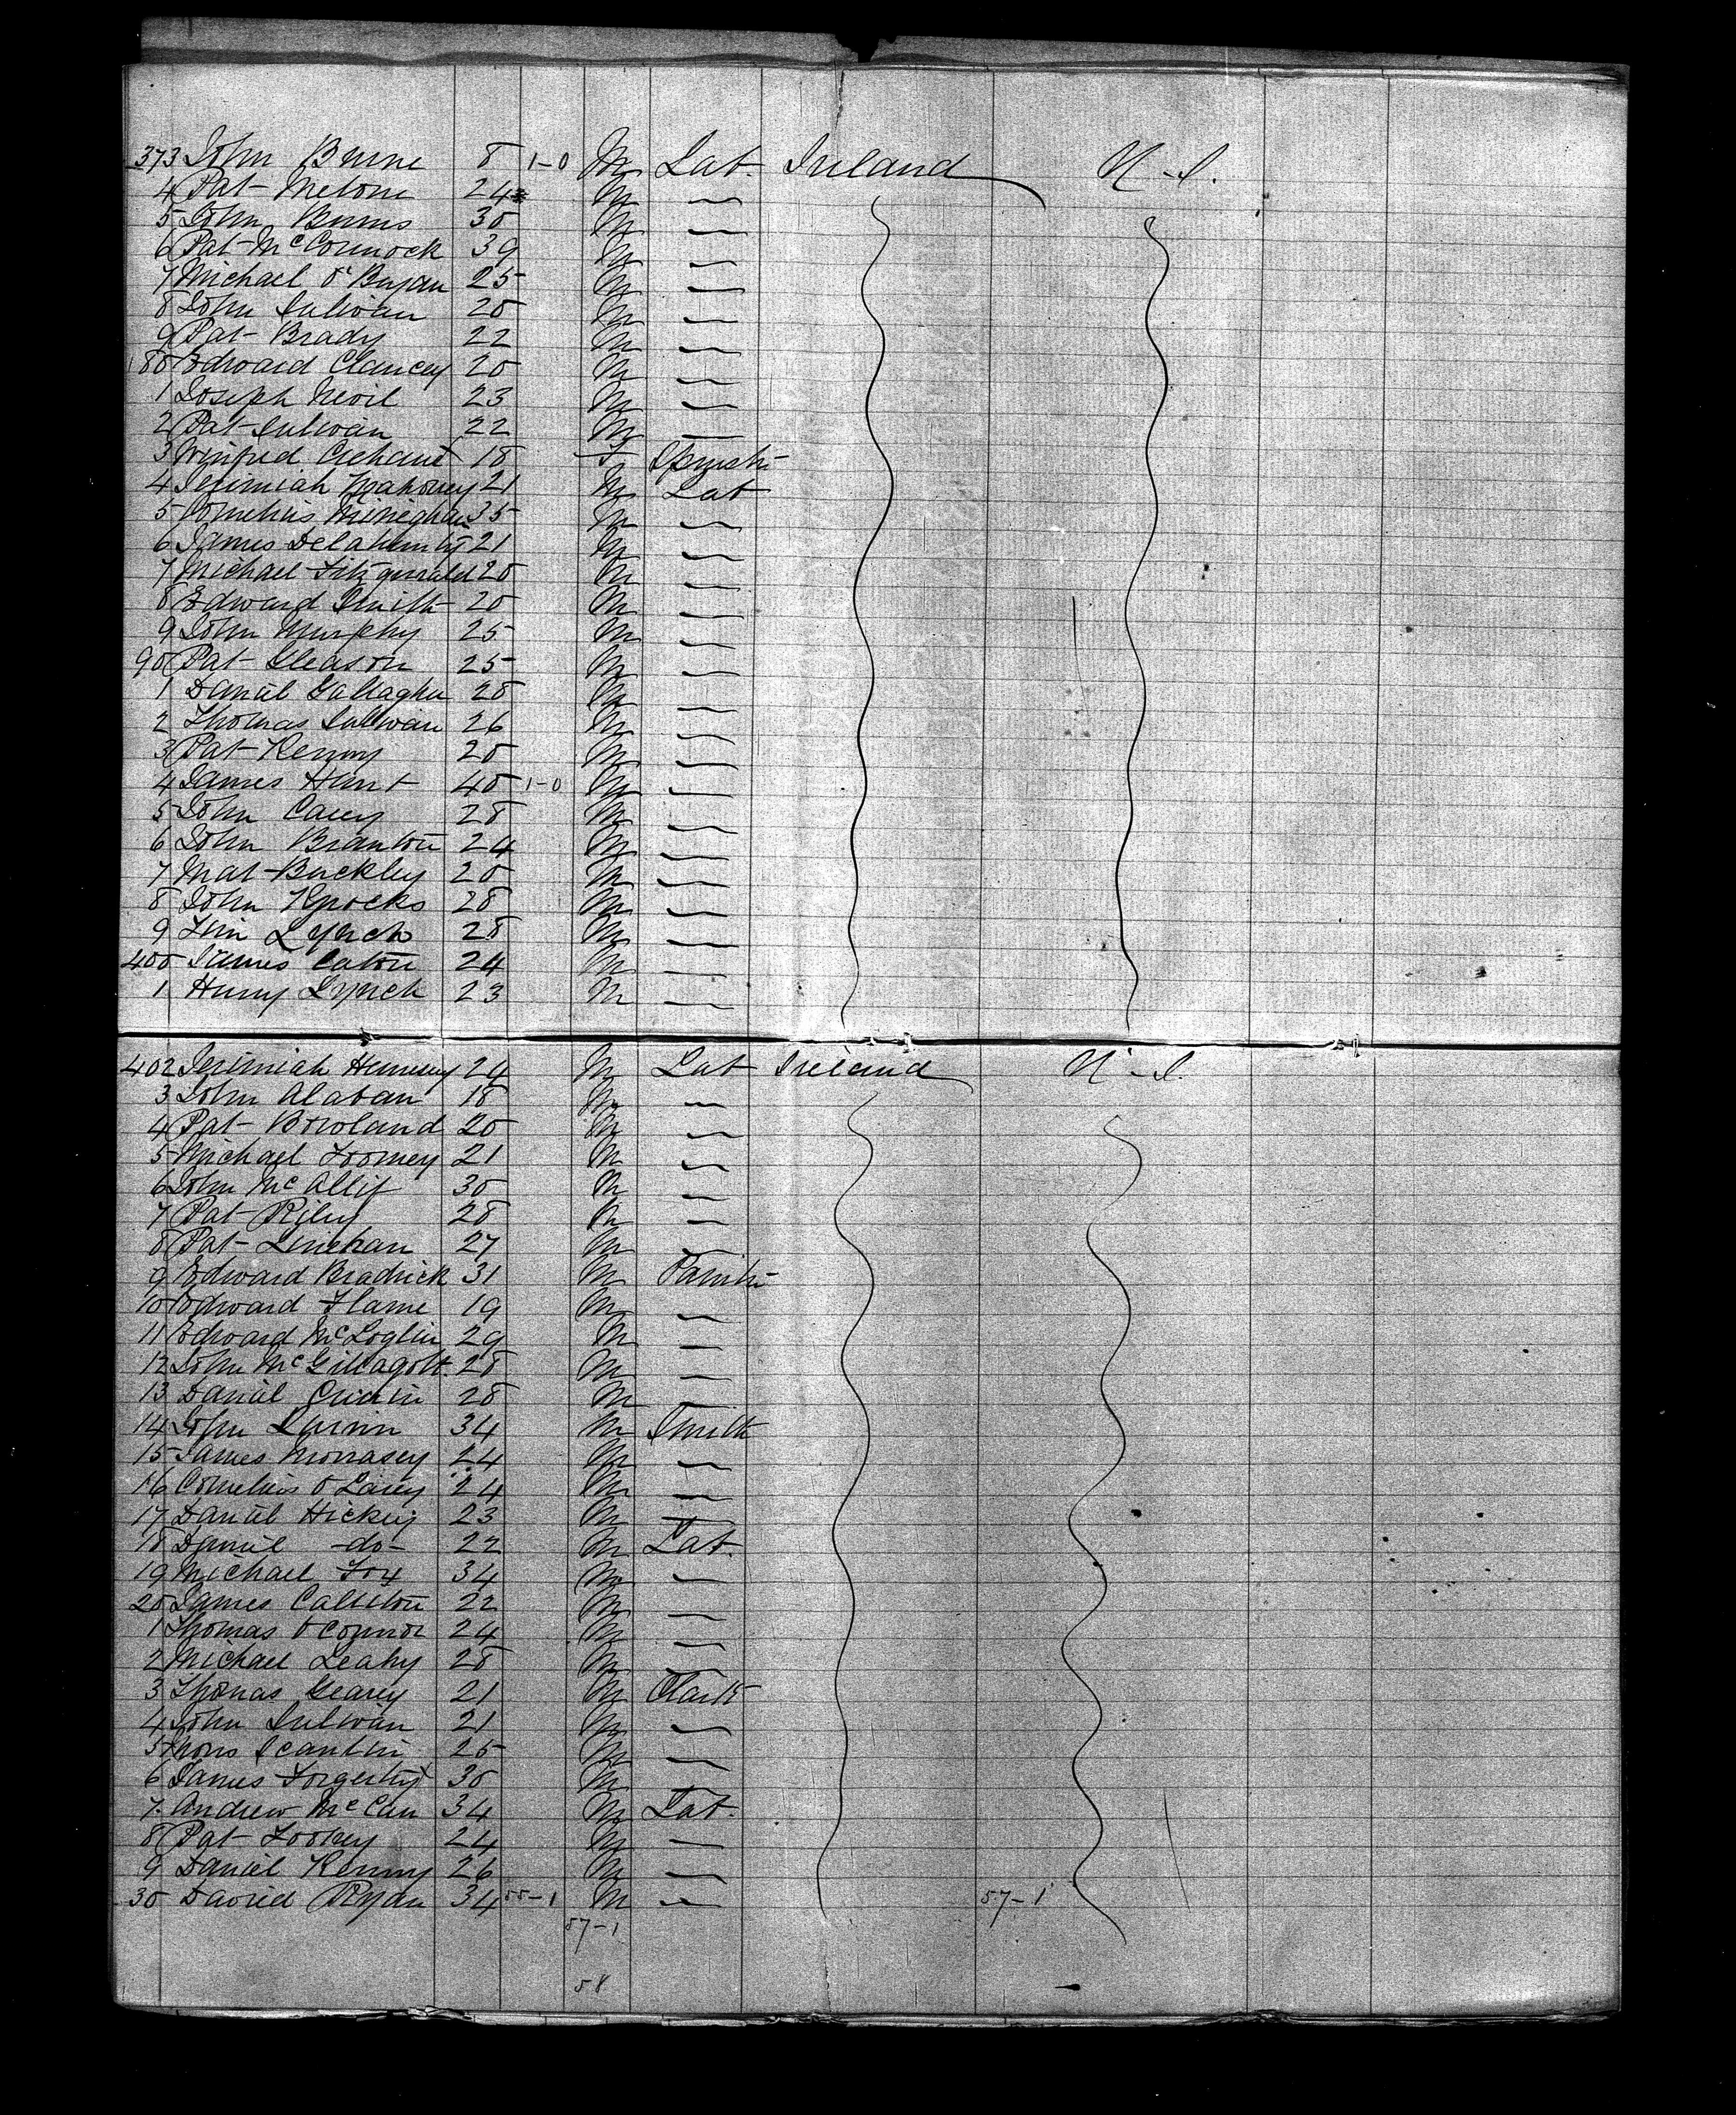 373 John Burne 8 1-0 M Lab. Ireland U-S.
4 Pat- Melone 24 M
5 John Burns 30 M
6 Pat- McCormock 39 M
7 Michael O'Bryan 25 M
8 John Sulivan 20 M
9 Pat- Brady 22 M
80 Edward Clancey 20 M
1 Joseph Nevil 23 M
2 Pat- Sulivan 22 M
3 Winifred 18 F Spinster
4 Jeremiah Mahoney 21 M Lab
5 Cornelius 35 M
6 James Delahunty 21 M
7 Michael Fitzgerald 20 M
8 Edward Smith 20 M
9 John Murphy 25 M
90 Pat- Gleason 25 M
1 Daniel Gallagher 28 M
2 Thomas Sulivan 26 M
3 Pat- Kenny 20 M
4 James Hunt 40 1-0 M
5 John Carey 28 M
6 John Branton 24 M
7 Mat- Buckley 20 M
8 John Knocks 28 M
9 Tim Lynch 28 M
400 James Eaton 24 M
1 Henry Lynch 23 M
402 Jeremiah Hennesy 24 M Lab Ireland U-S.
3 John Alaban 18 M
4 Pat- Bowland 20 M
5 Michael Toomey 21 M
6 John McAllif 30 M
7 Pat- Riley 28 M
8 Pat- Linehan 27 M
9 Edward Bradrick 31 M Painter
10 Edward Flame 19 M
11 Edward McLoglin 29 M
12 John 28 M
13 Daniel 28 M
14 John Quinn 34 M Smith
15 James Morrasey 24 M
16 Cornelius O'Larey 24 M
17 Daniel Hickey 23 M
18 Daniel -do- 22 M Lab.
19 Michael Fox 34 M
20 James 22 M
1 Thomas O'Connor 24 M
2 Michael Leahy 28 M
3 Thomas Gearey 21 M Clark
4 John Sulivan 21 M
5 Moris Scanlin 25 M
6 James Forgerty 30 M
7 Andrew McCan 34 M Lab.
8 Pat- Tookey 24 M
9 Daniel Kenny 26 M
30 David Ryan 34 55-1 M 57-1
57-1
58